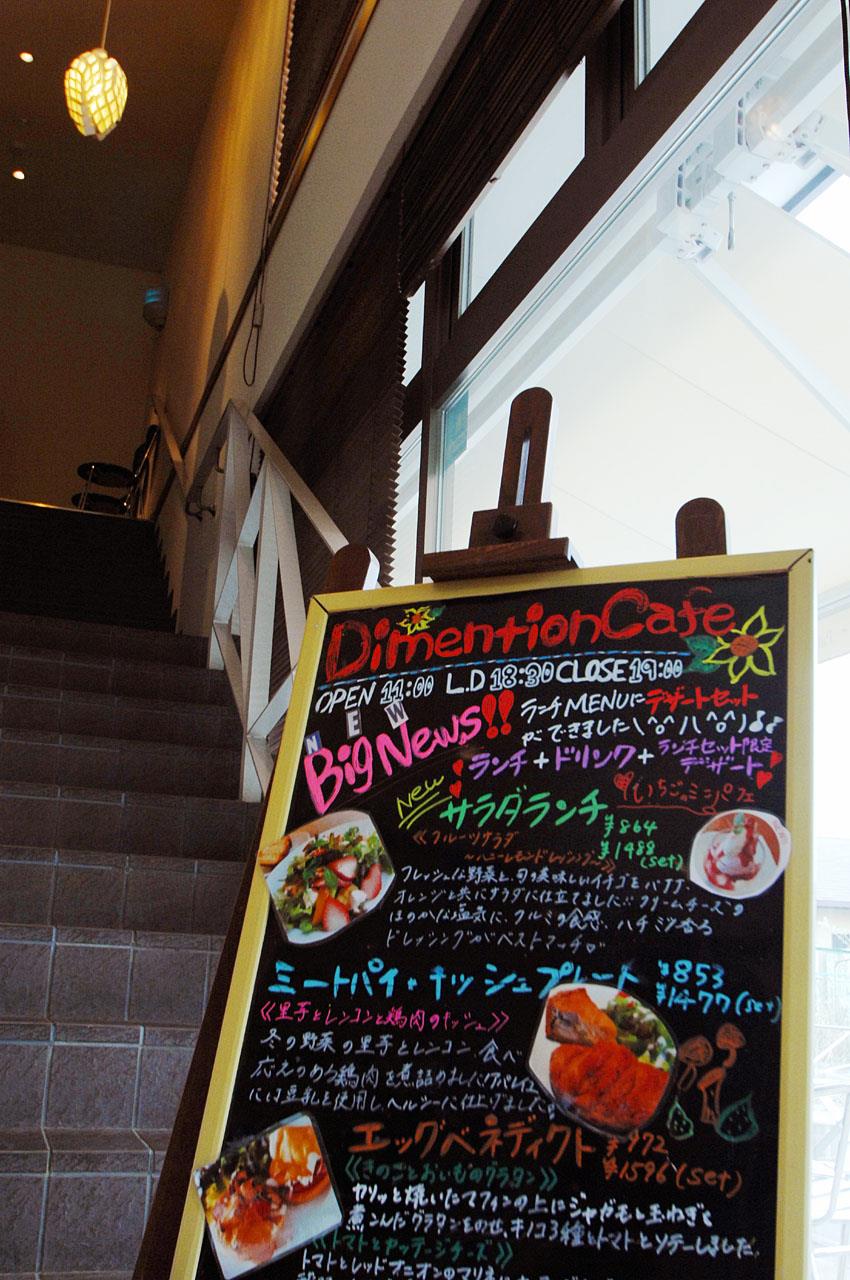 DimentionCafe
OPEN 11:00 L.D 18:30 CLOSE 19:00
NEW
Big News!!
ランチMENUにデザートセット
ができました\(^o^)/\(^o^)♪♪
ランチ+ドリンク+ランチセット限定デザート
いちごのミニパフェ
New
サラダランチ
¥864
¥1488(set)
《フルーツサラダ
~ハニーレモンドレッシング~》
フレッシュな野菜と、旬の美味しいイチゴをバナナ、
オレンジと共にサラダに仕立てました。クリームチーズの
ほのかな塩気に、クルミの食感、ハチミツ香る
ドレッシングがベストマッチ♡
ミートパイ・キッシュプレート
¥853
¥1477(set)
《里芋とレンコンと鶏肉のキッシュ》
冬の野菜の里芋とレンコン、食べ
応えのある鶏肉を煮詰めました。アパレイユ
には豆乳を使用し、ヘルシーに仕上げました。
エッグベネディクト
¥972
¥1596(set)
《きのことおいものグラタン》
カリッと焼いたマフィンの上にジャガモと玉ねぎを
煮こんだグラタンをのせ、キノコ3種とトマトとソテーしました。
《トマトとカッテージチーズ》
トマトとレッドオニオンのマリネ